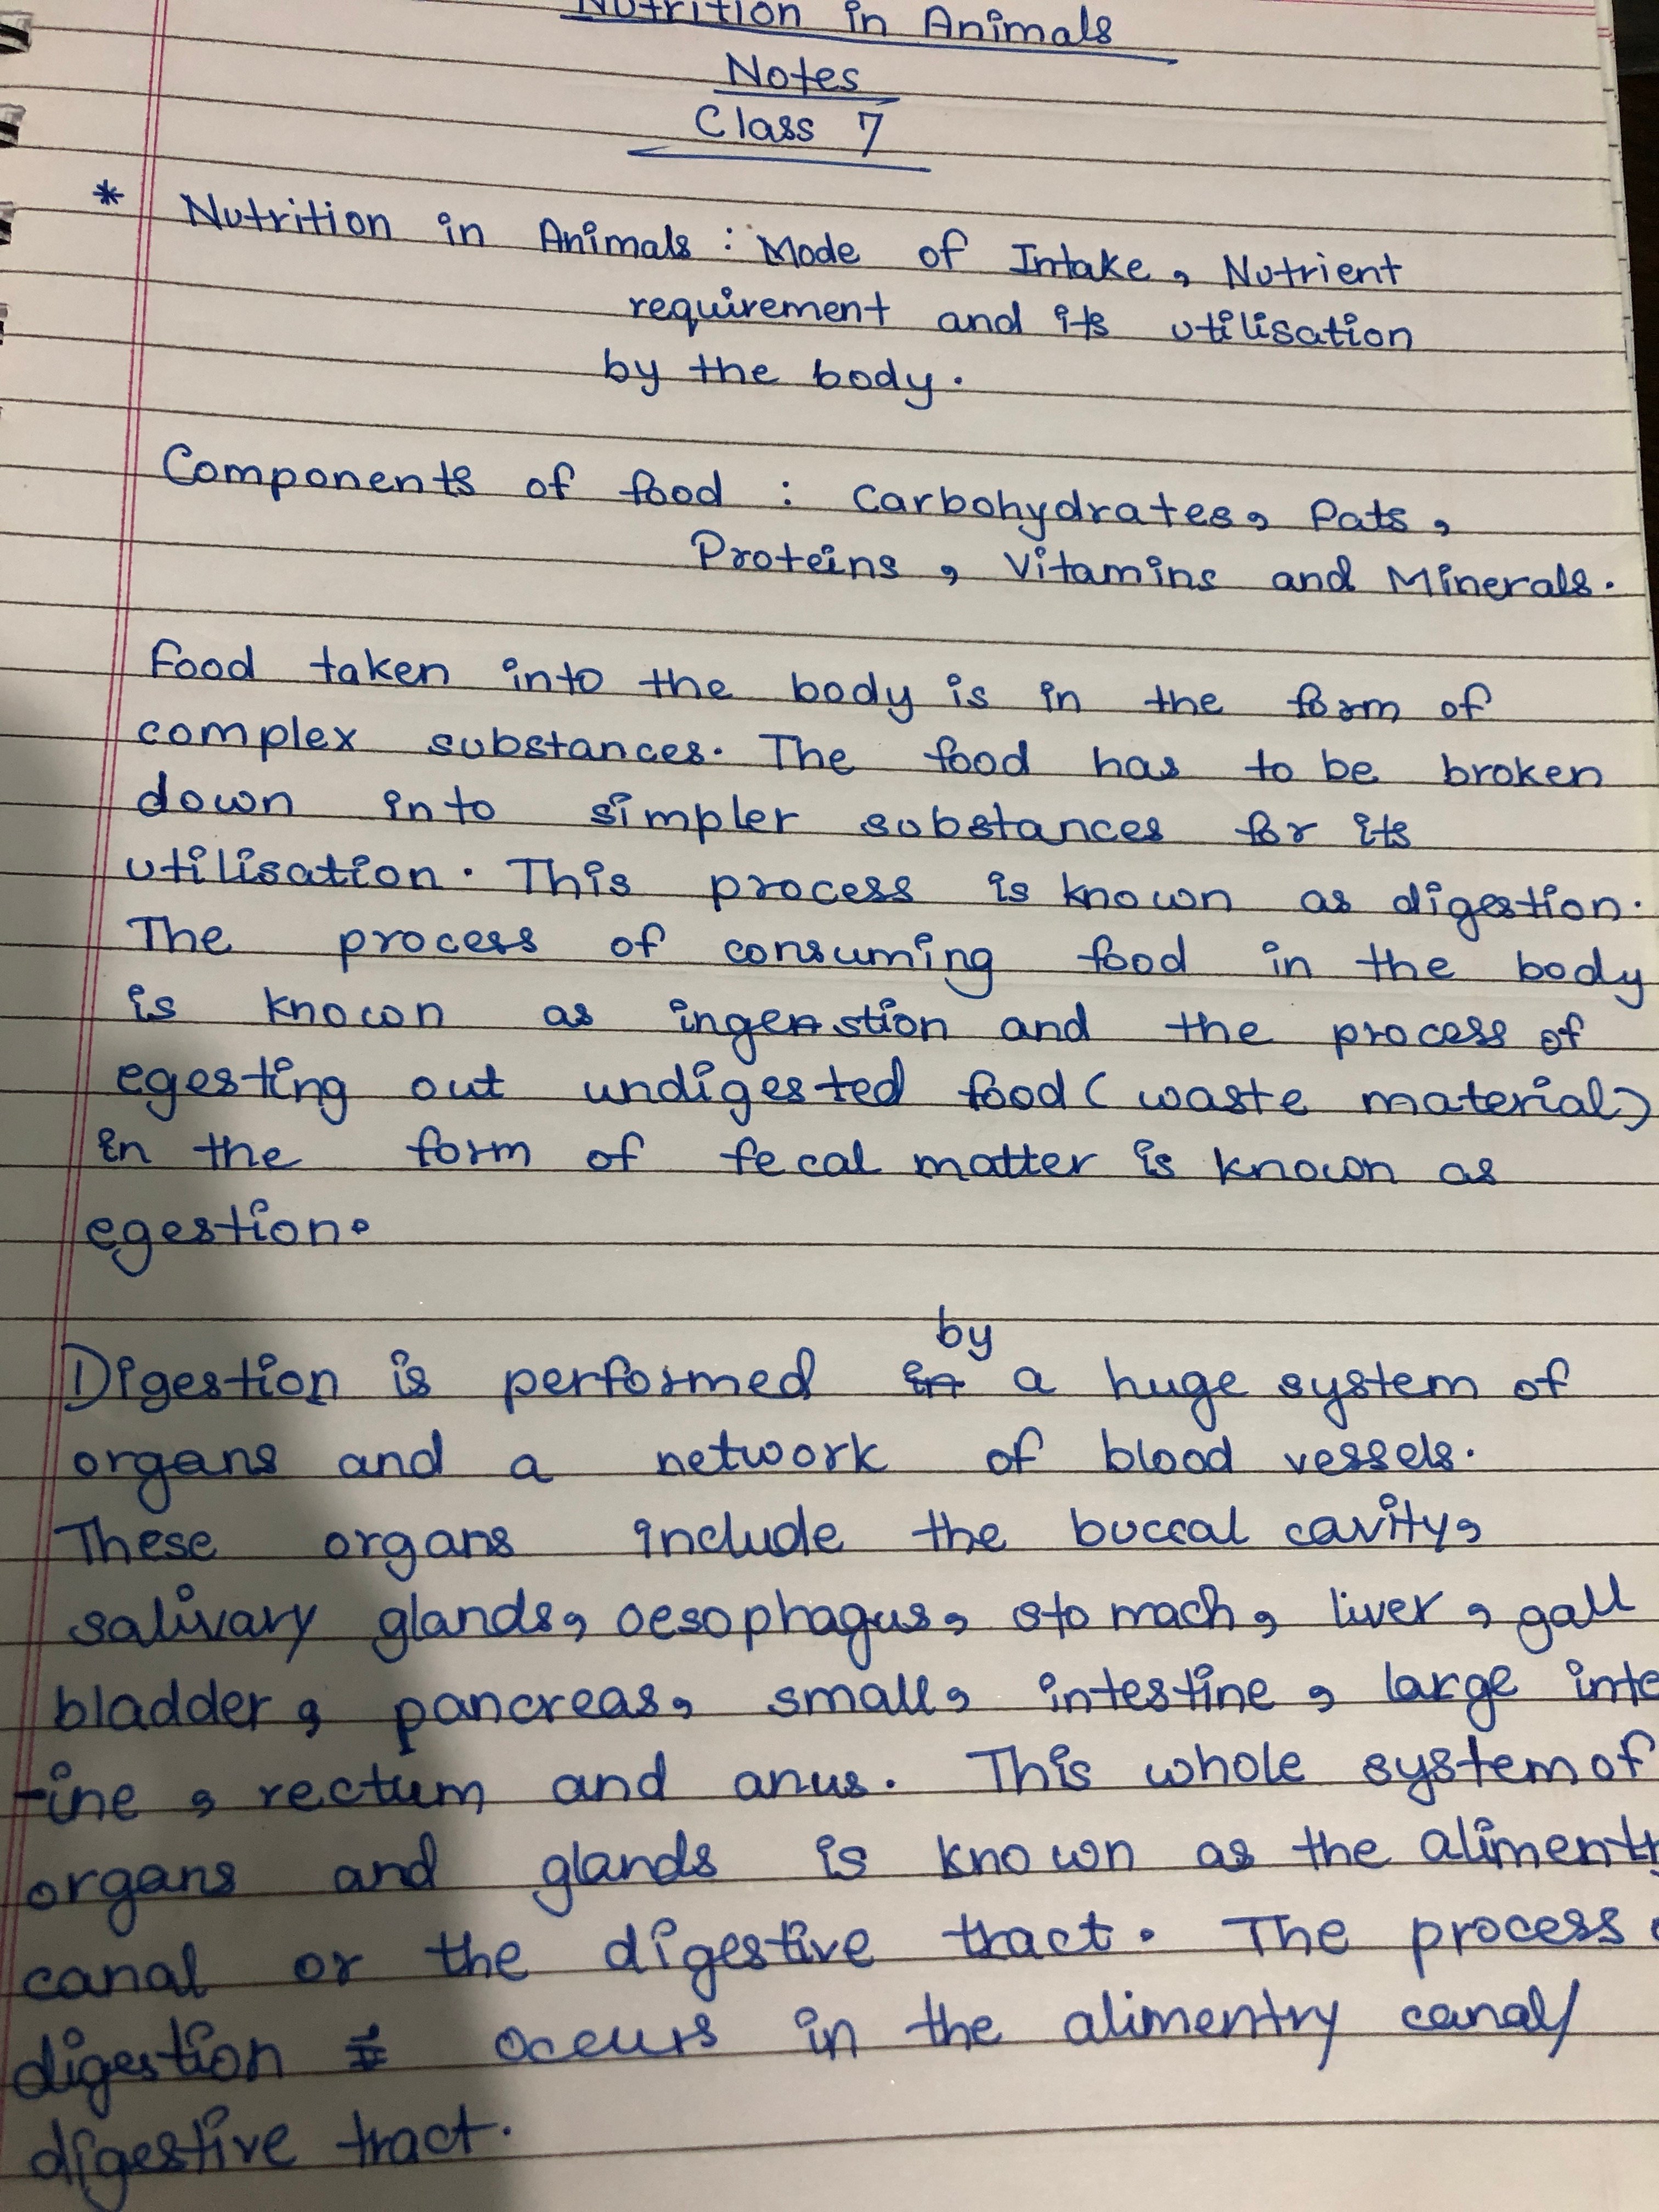 Nutrition in Animals
Notes
Class 7
* Nutrition in Animals : Mode of Intake, Nutrient
requirement and its utilisation
by the body.
Components of food : Carbohydrates, Pats,
Proteins, Vitamins and Minerals.
Food taken into the body is in the form of
complex substances. The food has to be broken
down into simpler substances for its
utilisation. This process is known as digestion.
The process of consuming food in the body
is known as ingestion and the process of
egesting out undigested food (waste material)
in the form of fecal matter is known as
egestion.
by
Digestion is performed in a huge system of
organs and a network of blood vessels.
These organs include the buccal cavity,
salivary glands, oesophagus, stomach, liver, gall
bladder, pancreas, small, intestine, large inte
-ine, rectum and anus. This whole system of
organs and glands is known as the alimentr
canal or the digestive tract. The process
digestion occurs in the alimentry canal/
digestive tract.